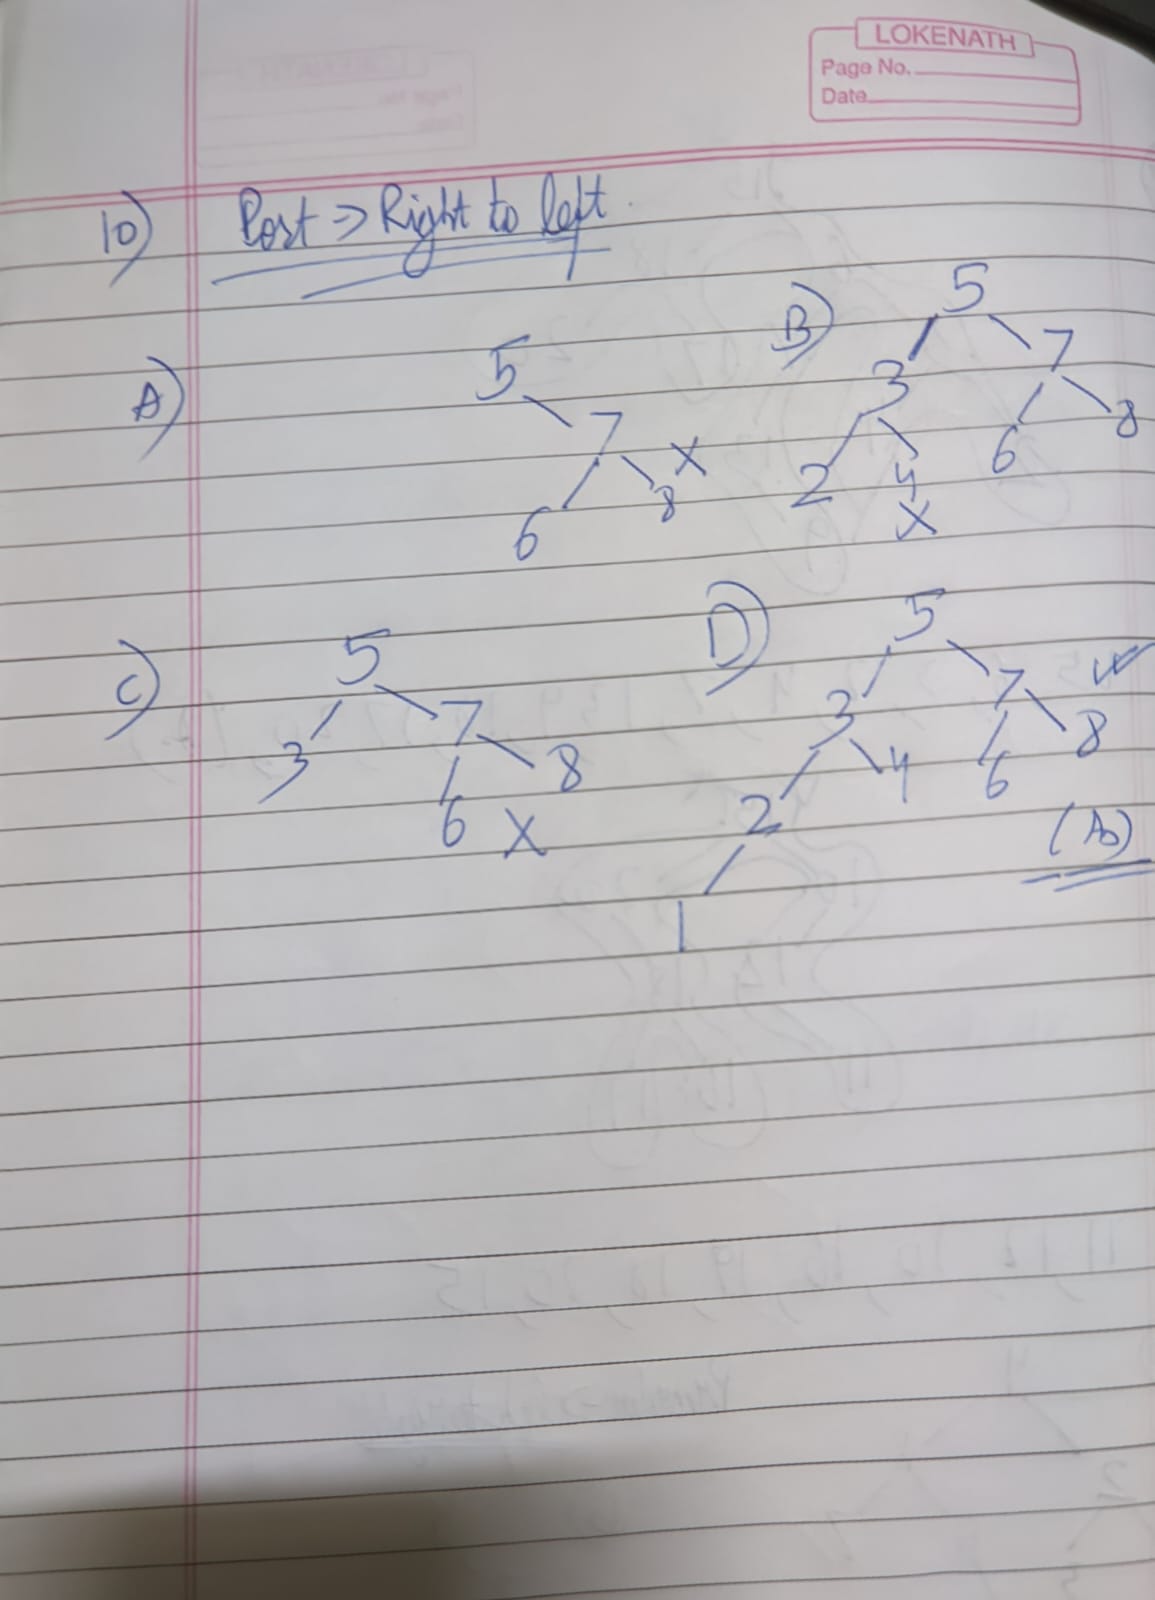 LOKENATH
Page No.
Date
10) Post => Right to left.
A)
5
7 X
6 8
B)
5
3 7
2 4 6 8
X
C)
5
3 7
6 8
X
D)
5
3 7 ✓
2 4 6 8
1
(A)